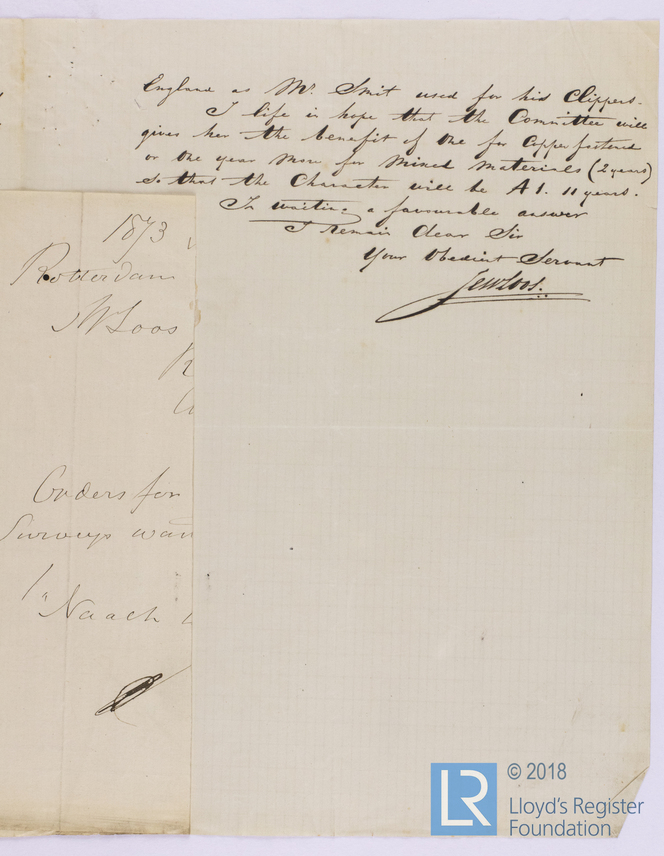 England as Mr. Smit used for his Clippers.
I life in hope that the Committee will
gives her the benefit of one for Copperfastened
or one year More for Mixed Materials (2 years)
so that the Character will be A 1. 11 years.
In waiting a favourable answer
I Remain Dear Sir
Your Obedient Servant
JW Loos.
1873
Rotterdam
JW Loos
Orders for
Surveys wan
1
"Naach
LR
© 2018
Lloyd's Register
Foundation